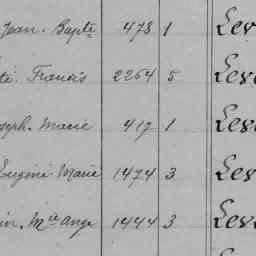 Jean. Bapte 478 1 Lev
te. Francis 2264 5 Leve
seph. Marie 417 1 Leve
Eugène Marie 1474 3 Leve
in. Mie ange 1444 3 Leve